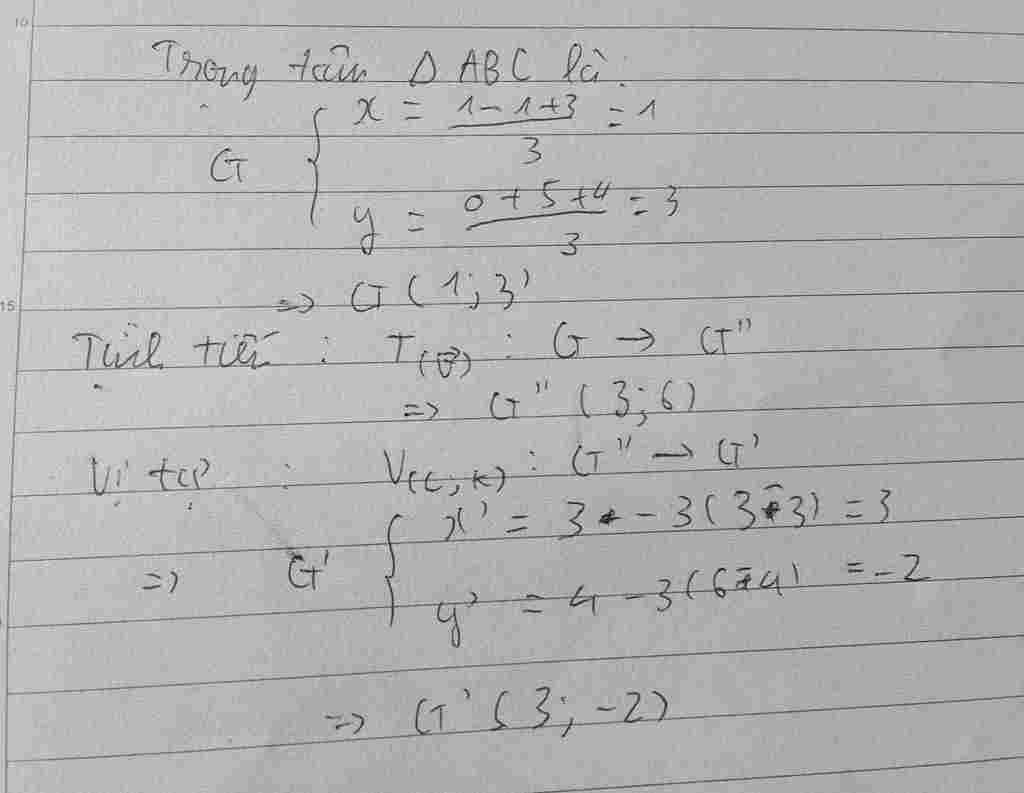 10
Trọng tâm Δ ABC là:
x = (1 - 1 + 3)/3 = 1
G {
y = (0 + 5 + 4)/3 = 3
=> G (1; 3)
15
Tịnh tiến : T(v⃗) : G → G''
=> G'' (3; 6)
Vị tự : V(C, k) : G'' → G'
x' = 3 - 3(3 - 3) = 3
=> G' {
y' = 4 - 3(6 - 4) = -2
=> G' (3; -2)